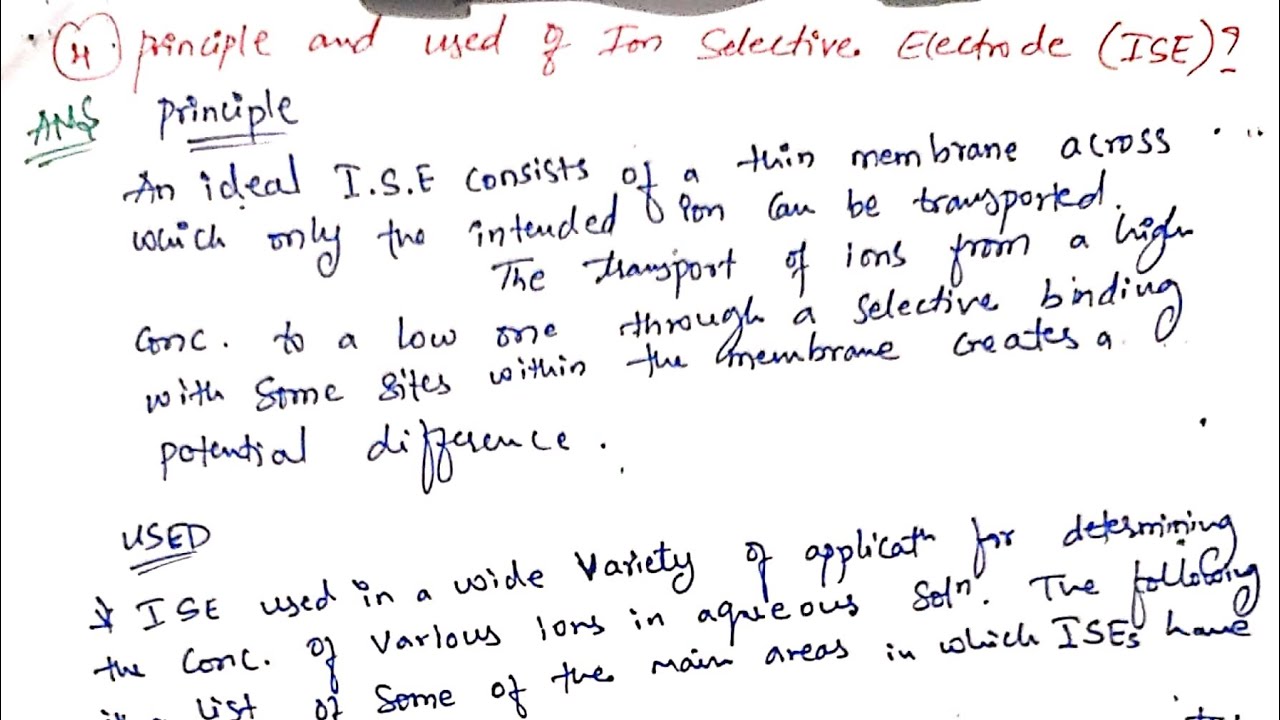 4. principle and used of Ion Selective Electrode (ISE)?
Ans Principle
An ideal I.S.E consists of a thin membrane across
which only the intended ion can be transported.
The transport of ions from a high
conc. to a low one through a selective binding
with some sites within the membrane creates a
potential difference.
USED
ISE used in a wide variety of applicatn for determining
the conc. of various ions in aqueous soln. The following
list of some of the main areas in which ISEs have